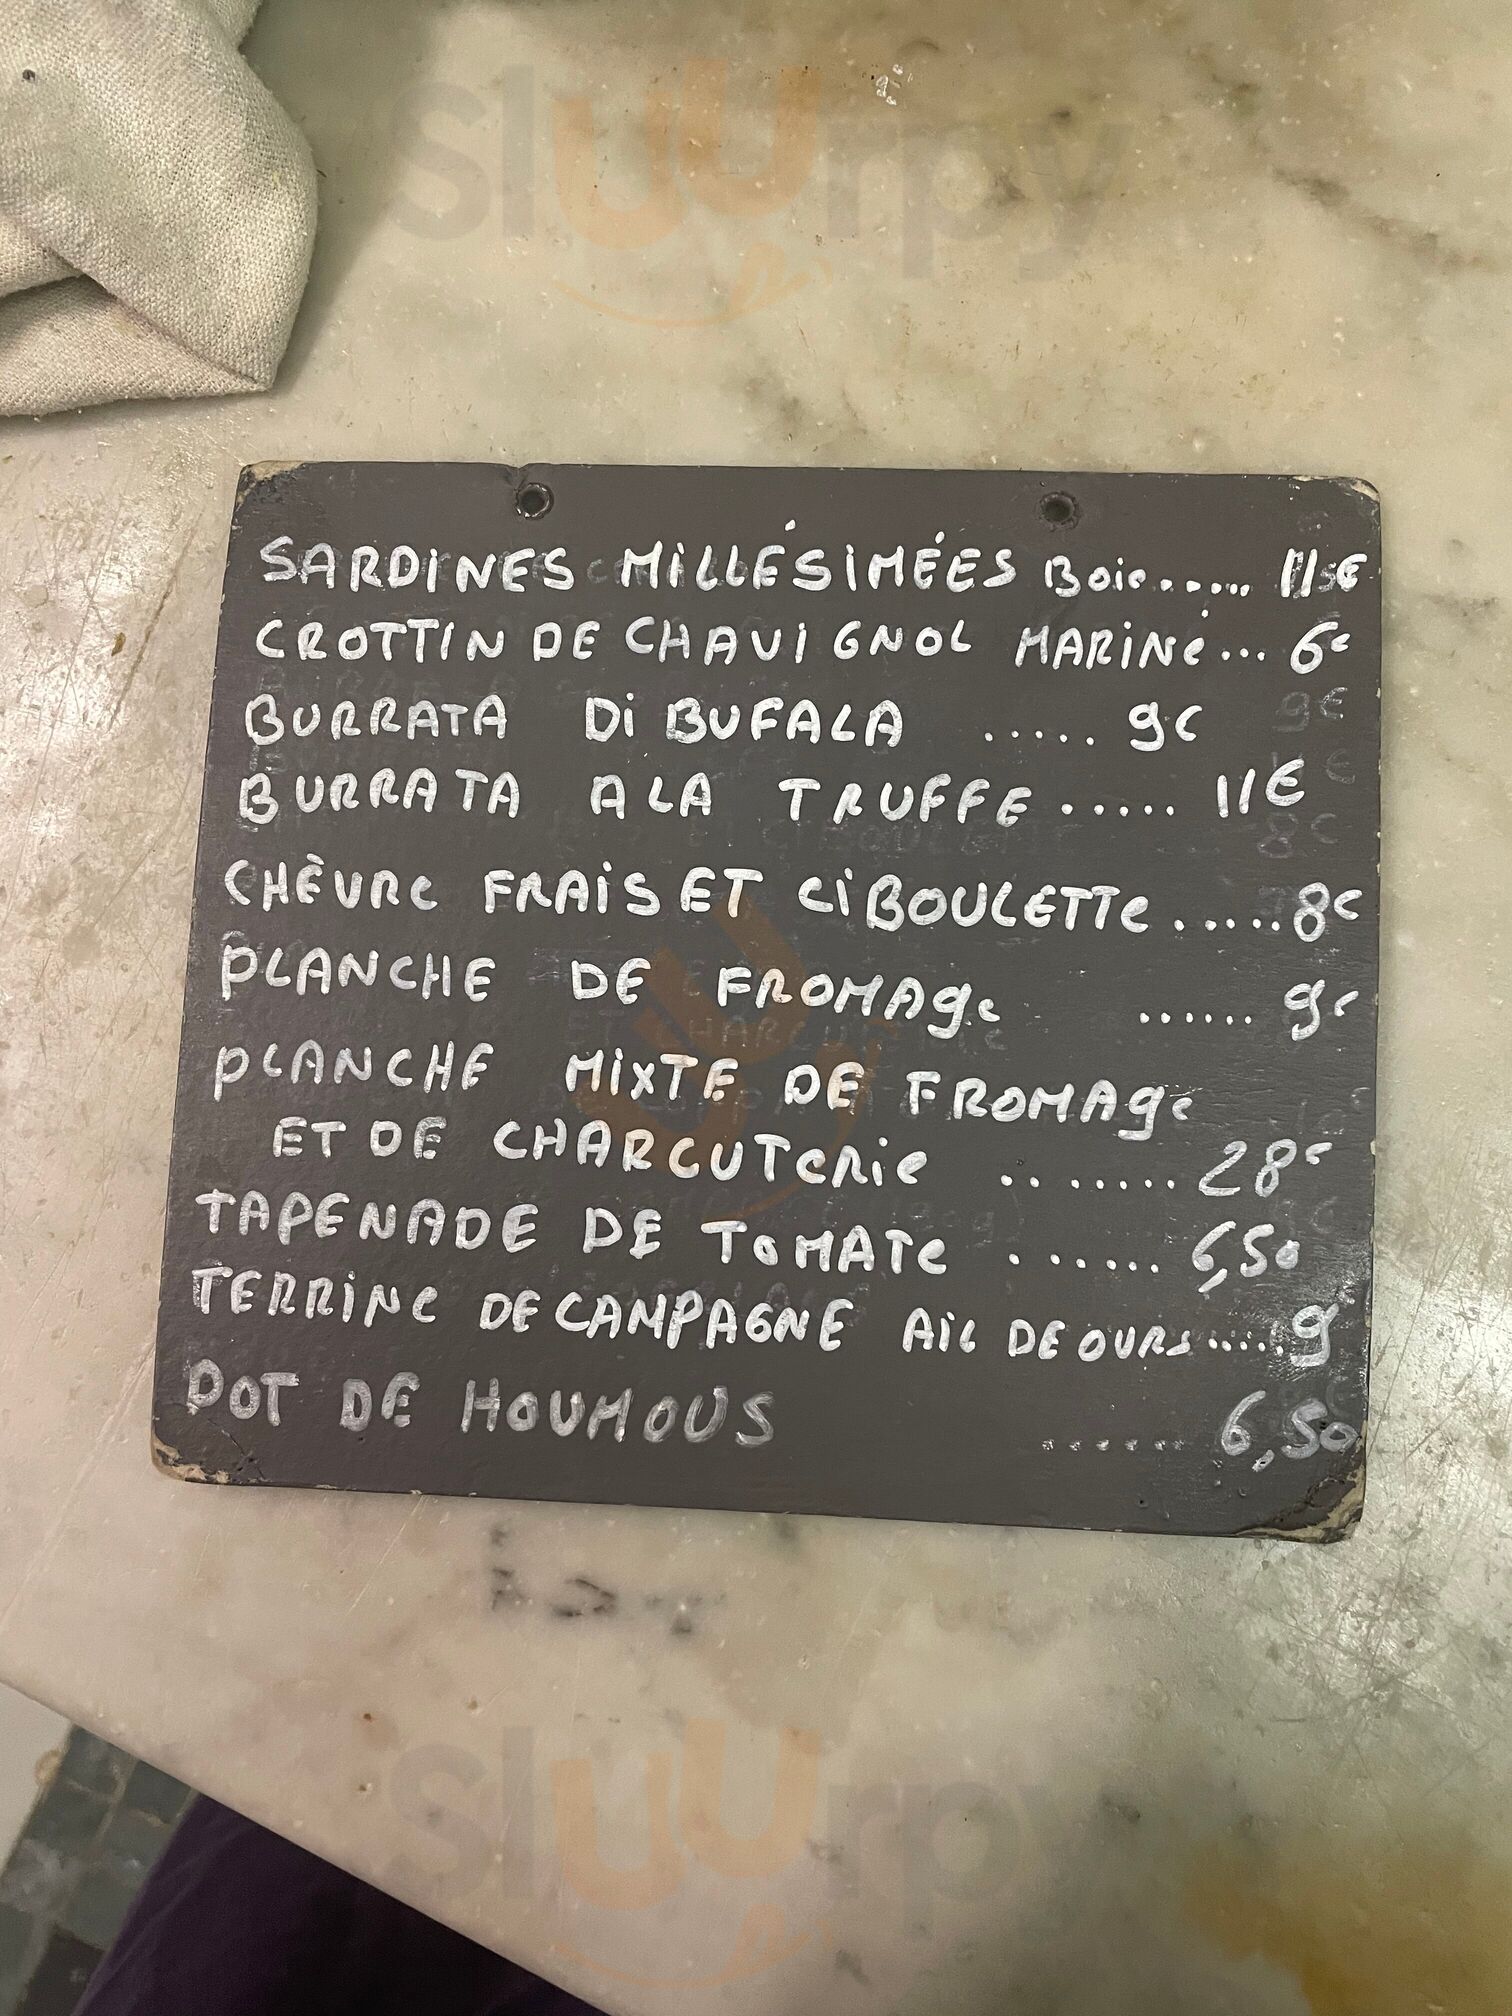 sluurpy
SARDINES MILLÉSIMÉES Boie...... 11€
CROTTIN DE CHAVIGNOL MARINE... 6€
BURRATA Di BUFALA ..... 9€
BURRATA A LA TRUFFE ..... 11€
CHÈVRE FRAIS ET CIBOULETTE ..... 8€
PLANCHE DE FROMAGE ...... 9€
PLANCHE MIXTE DE FROMAGE
ET DE CHARCUTERIE ........ 28€
TAPENADE DE TOMATE ....... 6,50
TERRINE DE CAMPAGNE AIL DE OURS ..... 9
POT DE HOUMOUS ...... 6,50
sluurpy